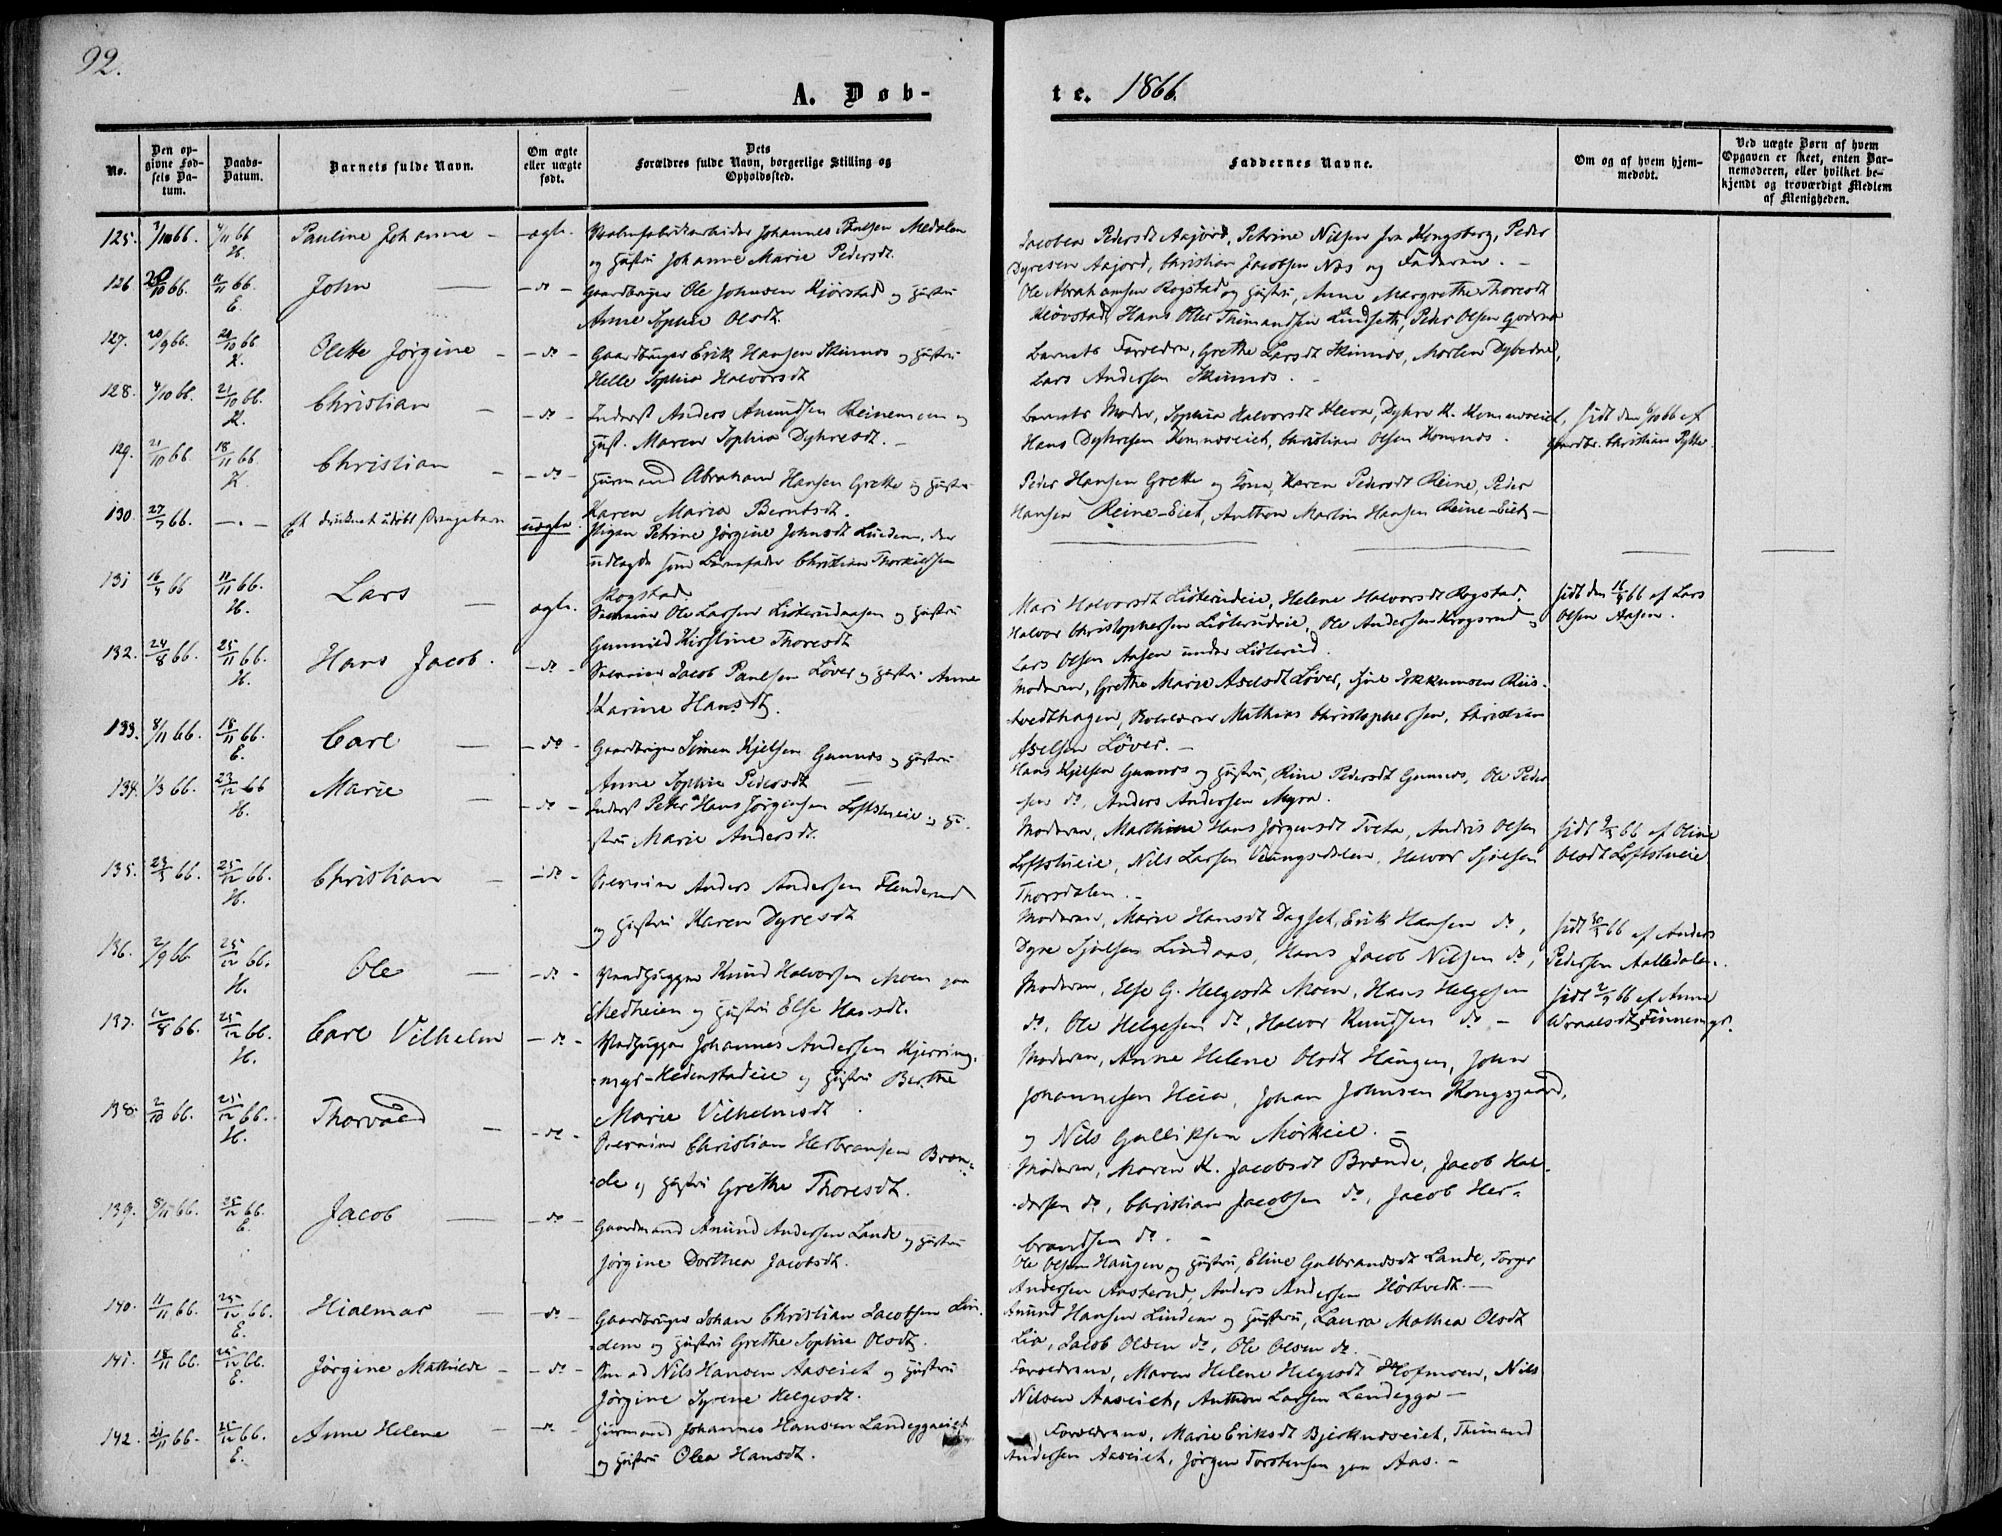 92.
A. Døb-
te. 1866.
No.
Den op-
givne Fød-
sels Da-
tum.
Daabs-
Datum.
Barnets fulde Navn.
Om ægte
eller uægte
født.
Dets
Forældres fulde Navn, borgerlige Stilling og
Opholdssted.
Faddernes Navne.
Om og af hvem hjem-
medøbt.
Ved uægte Børn af hvem
Opgaven er skeet, enten Bar-
nemoderen, eller hvilket be-
kjendt og troværdigt Medlem
af Menigheden.
125. 66. 4/11 66 H. Pauline Johanne - - ægte.
Johannes Paulsen Medalen
og Hustru Johanne Marie Pedersdt.
Jacobea Pedersdt Aasjord, Petrine Nilsen fra Kongsberg, Peder
Dyresen Aasjord, Christian Jacobsen Næs og Faderen. -
126 20/10 66. 11/11 66. E. John - do -
Gaardbruger Ole Johnsen Kjørstad og Hustru
Anne Sophie Olsdt.
Ole Abrahamsen Rogstad og Hustru, Anne Margrethe Thoresdt
Kløvstad, Hans Olles Thimandsen Lindseth, Peder Olsen
127. 20/9 66. 28/10 66 K. Olette Jørgine - - do -
Gaardbruger Erik Hansen Skinnes og Hustru
Helle Sophie Halvorsdt
Barnets Forældre, Grethe Larsdt Skinnes, Morten Dybedal,
Lars Andersen Skinnes. -
128. 4/10 66. 21/10 66. K. Christian - - do -
Inderst Anders Amundsen Reinemoen og
Hust. Maren Sophie Dyhresdt. -
Barnets Moder, Sophie Halvorsdt Kleva, Dyhre K. Komnæseiet,
Hans Dyhresen Komnæseiet, Christian Olsen Komnæs.
hjdt den 6/10 66 af
Gaardbr. Christian Pytte.
129. 21/10 66 18/11 66. K. Christian - - do -
Huusmand Abraham Hansen Grette og Hustru
Karen Maria Berntsdt.
Peder Hansen Grette og Kone, Karen Pedersdt Reine, Peder
Hansen Reine-Eiet, Anthon Martin Hansen Reine-Eiet -
130 27/7 66. - . - Et udøbt Drengebarn uægte.
Pigen Petrine Jørgine Johnsdt Linden, der
udlagde som Barnefader Christian Thorkildsen
Skogstad.
131 16/4 66 11/11 66. H. Lars - ægte.
Ole Larsen Lislerudaasen og Hustru
Gunnild Kirstine Thoresdt
Mari Halvorsdt Lislerudeie, Helene Halvorsdt Rogstad,
Halvor Christophersen Lislerudeie, Ole Andersen Krogsrud og
Lars Olsen Aasen under Lislerud.
hjdt den 16/4 66 af Lars
Olsen Aasen.
132. 24/8 66. 25/11 66. H. Hans Jacob. - do -
Jacob Paulsen Løver og Hustru Anne
Karine Hansdt.
Moderen, Grethe Marie Axelsdt Løver,
Mathias Christophersen, Christian
Axelsen Løver. -
133. 8/11 66. 18/11 66. E. Carl - - do -
Gaardbruger Simen Kjelsen Gunnes og Hustru
Anne Sophie Pedersdt
Hans Kjelsen Gunnes og Hustru, Rine Pedersdt Gunnes, Ole Peder-
sen do, Anders Andersen Myra.
134. 1/3 66. 23/12 66 H. Marie - - do -
Inderst Peter Hans Jørgensen Loftstueie og Hu-
stru Marie Andersdt.
Moderen, Marthine Hans Jørgensdt Tveta, Andris Olsen
Loftstueie, Nils Larsen Halvor Sjulsen
Thorsdalen. -
hjdt 66 af Oline
Olsdt Loftstueie
135. 66. 25/12 66. H. Christian - - do -
Anders Andersen Flenderud
og Hustru Karen Dyresdt
Moderen, Marie Hansdt Dagset, Erik Hansen do,
Dyre Sjulsen Lindaas, Hans Jacob Nilsen do,
hjdt 66 af Anders
Pedersen
136. 2/9 66 25/12 66. H. Ole - - do -
Vedhugger Knud Halvorsen Moen paa
Medheien og Hustru Else Hansdt.
Moderen, Else G. Helgesdt Moen, Hans Helgesen
do, Ole Helgesen do, Halvor Knudsen do -
hjdt 2/9 66 af Anne
137. 12/8 66. 25/12 66. H. Carl Vilhelm - do -
Vedhugger Johannes Andersen Kjerring-
myr-Hedenstadeie og Hustru Berthe
Marie Vilhelmsdt.
Moderen, Anne Helene Olsdt Haugen, John
Johannesen Heia, Johan Johnsen Kongsgaard,
og Nils Gulliksen Mørkeie. -
138. 2/10 66. 25/12 66. H. Thorvald - - do -
Christian Herbransen Bræn-
de og Hustru Grethe Thoresdt.
Moderen, Maren K. Jacobsdt Brænde, Jacob Hal-
dorsen do, Christian Jacobsen do, Jacob Her-
brandsen do. -
139. 8/11 66. 25/12 66. E. Jacob - - do -
Gaardmand Amund Andersen Lande og Hustru
Jørgine Dorthea Jacobsdt.
Ole Olsen Haugen og Hustru, Eline Gulbrandsdt Lande, Torger
Andersen Aasterud, Anders Andersen Hørtvedt. -
140. 11/11 66. 25/12 66. E. Hialmar - - do -
Gaardbruger Johan Christian Jacobsen Lin-
dem og Hustru Grethe Sophie Olsdt.
Amund Hansen Lindem og Hustru, Laura Mathea Olsdt
Lia, Jacob Olsen do, Ole Olsen do.
141. 18/11 66. 25/12 66. E. Jørgine Mathilde - - do -
Nils Hansen Aaseiet og Hustru
Jørgine Syrene Helgesdt.
Forældrene, Maren Helene Helgesdt Hofmoen, Nils
Nilsen Aaseiet, Anthon Larsen Landegga -
142. 21/11 66. 25/12 66. E. Anne Helene - - do -
Huusmand Johannes Hansen Landeggaeiet
og Hustru Olea Hansdt.
Forældrene, Marie Eriksdt Bjerknæseiet, Thimand
Andersen Aaseiet, Jørgen Torstensen paa Aas. -